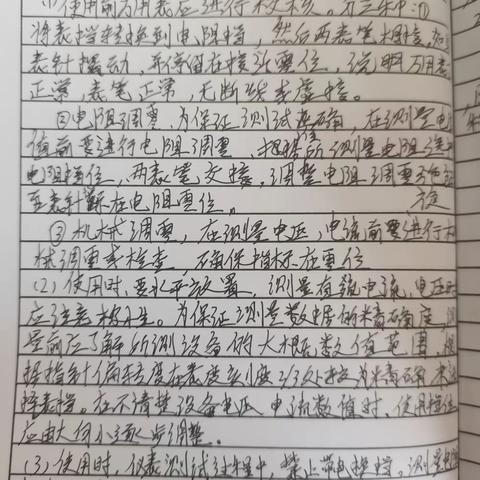 (1)使用前万用表应进行校核。分三种:①
将表档转换到电阻档,然后两表笔相接,如
表针摆动,并停留在接近零位,说明万用表
正常,表笔正常,无断线或虚接。
②电阻调零,为保证测试准确,在测量电
值前要进行电阻调零,根据所测量电阻选
电阻档位,两表笔交接,调整电阻调零
至表针 在电阻零位。
③机械调零,在测量电压,电流前要进行机
械调零或检查,确保指标在零位
(2)使用时,要水平放置,测量直流电流、电压时
应注意极性。为保证测量数据的精确度,
量前应了解所测设备的大概数值范围,
据指针偏转度在表度刻度2/3处较为精确来
择表档。在不清楚设备电压、电流数值时,使用档位
应由大向小逐步调整。
(3)使用时,仪表测试过程中,禁止带电换档。测量